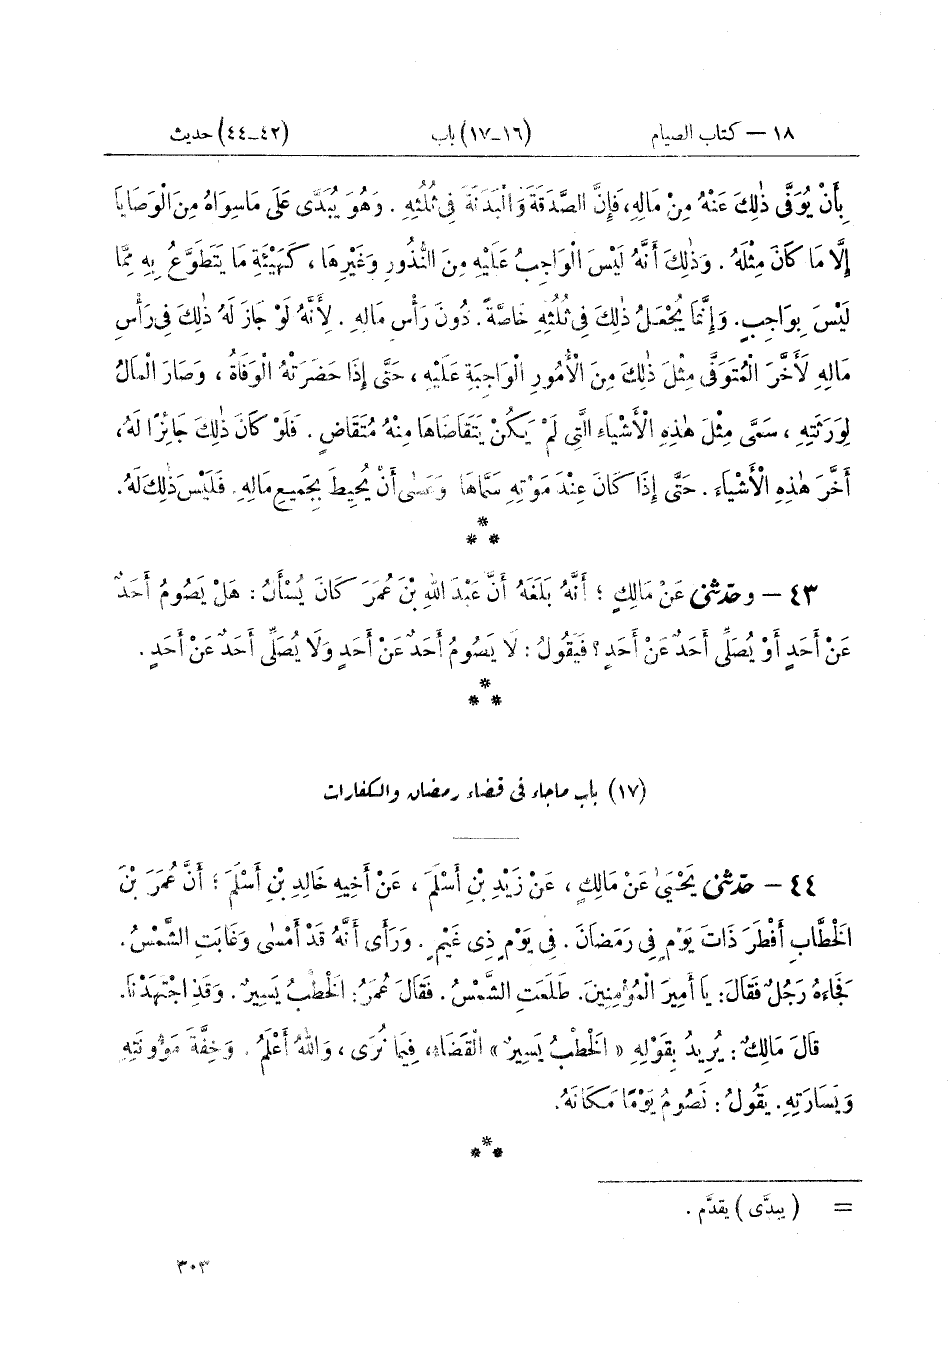 ١٨ – كتاب الصيام (١٦-١٧) باب (٤٢-٤٤) حديث
بِأَنْ يُوَفَّى ذٰلِكَ عَنْهُ مِنْ مَالِهِ، فَإِنَّ الصَّدَقَةَ وَالْبَدَنَةَ فِى ثُلُثِهِ . وَهُوَ يُبَدَّى عَلَى مَاسِوَاهُ مِنَ الْوَصَايَا
إِلَّا مَا كَانَ مِثْلَهُ . وَذٰلِكَ أَنَّهُ لَيْسَ الْوَاجِبُ عَلَيْهِ مِنَ النُّذُورِ وَغَيْرِهَا، كَهَيْئَةِ مَا يَتَطَوَّعُ بِهِ مِمَّا
لَيْسَ بِوَاجِبٍ. وَإِنَّمَا يُجْعَلُ ذٰلِكَ فِى ثُلُثِهِ خَاصَّةً. دُونَ رَأْسِ مَالِهِ . لِأَنَّهُ لَوْ جَازَ لَهُ ذٰلِكَ فِى رَأْسِ
مَالِهِ لَأَخَّرَ الْمُتَوَفَّى مِثْلَ ذٰلِكَ مِنَ الْأُمُورِ الْوَاجِبَةِ عَلَيْهِ ، حَتَّى إِذَا حَضَرَتْهُ الْوَفَاةُ ، وَصَارَ الْمَالُ
لِوَرَثَتِهِ ، سَمَّى مِثْلَ هٰذِهِ الْأَشْيَاءِ الَّتِى لَمْ يَكُنْ يَتَقَاضَاهَا مِنْهُ مُتَقَاضٍ . فَلَوْ كَانَ ذٰلِكَ جَائِزًا لَهُ،
أَخَّرَ هٰذِهِ الْأَشْيَاءَ . حَتَّى إِذَا كَانَ عِنْدَ مَوْتِهِ سَمَّاهَا وَعَسٰى أَنْ يُحِيطَ بِجَمِيعِ مَالِهِ. فَلَيْسَ ذٰلِكَ لَهُ.
*
* *
٤٣ – وحدثنى عَنْ مَالِكٍ ؛ أَنَّهُ بَلَغَهُ أَنَّ عَبْدَ اللهِ بْنَ عُمَرَ كَانَ يُسْأَلُ : هَلْ يَصُومُ أَحَدٌ
عَنْ أَحَدٍ أَوْ يُصَلِّى أَحَدٌ عَنْ أَحَدٍ ؟ فَيَقُولُ : لَا يَصُومُ أَحَدٌ عَنْ أَحَدٍ وَلَا يُصَلِّى أَحَدٌ عَنْ أَحَدٍ .
*
* *
(١٧) باب ماجاء فى قضاء رمضان والكفارات
٤٤ – حدثنى يَحْيَىٰ عَنْ مَالِكٍ ، عَنْ زَيْدِ بْنِ أَسْلَمَ ، عَنْ أَخِيهِ خَالِدِ بْنِ أَسْلَمَ ؛ أَنَّ عُمَرَ بْنَ
الْخَطَّابِ أَفْطَرَ ذَاتَ يَوْمٍ فِى رَمَضَانَ . فِى يَوْمٍ ذِى غَيْمٍ . وَرَأَى أَنَّهُ قَدْ أَمْسٰى وَغَابَتِ الشَّمْسُ.
فَجَاءَهُ رَجُلٌ فَقَالَ: يَا أَمِيرَ الْمُؤْمِنِينَ. طَلَعَتِ الشَّمْسُ. فَقَالَ عُمَرُ: الْخَطْبُ يَسِيرٌ. وَقَدِ اجْتَهَدْنَا.
قَالَ مَالِكٌ : يُرِيدُ بِقَوْلِهِ «الْخَطْبُ يَسِيرٌ» الْقَضَاءَ، فِيمَا نُرَى، وَاللهُ أَعْلَمُ . وَخِفَّةَ مَؤُونَتِهِ
وَيَسَارَتِهِ. يَقُولُ : نَصُومُ يَوْمًا مَكَانَهُ.
*
* *
= (يبدَّى) يقدَّم .
٣٠٣